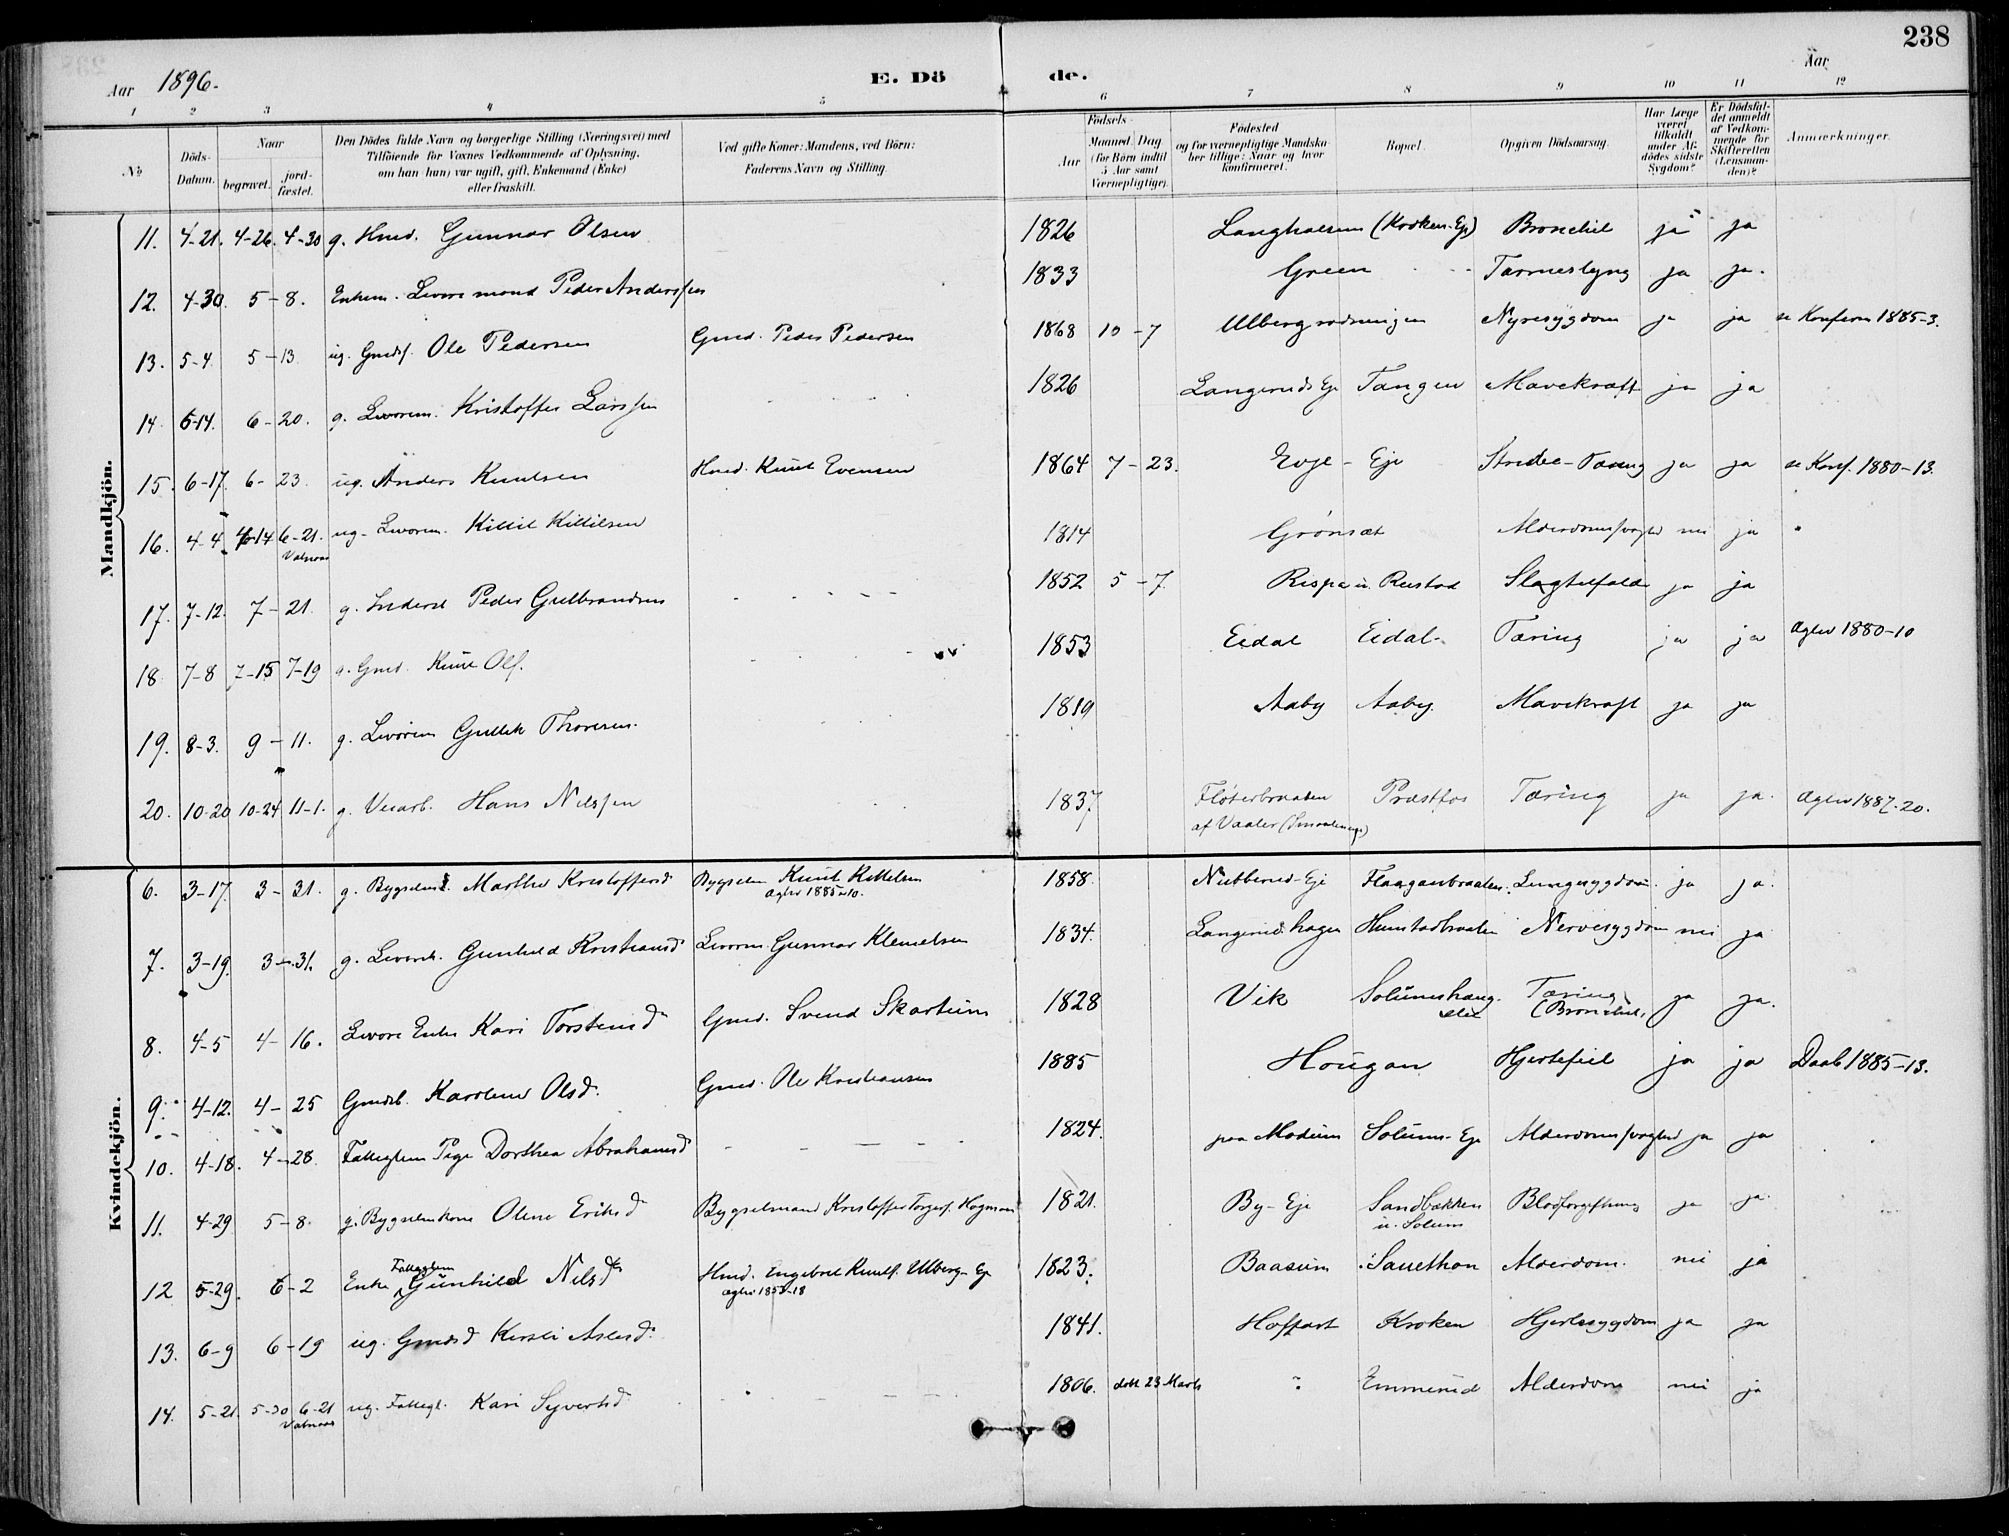 238
Aar 1896.
E. Dö de.
Aar
1 2 3 4 5 6 7 8 9 10 11 12
№
Döds-Datum.
Naar
begravet.
jord-fæstet.
Den Dödes fulde Navn og borgerlige Stilling (Næringsvei) med
Tilföiende for Voxnes Vedkommende af Oplysning,
om han (hun) var ugift, gift, Enkemand (Enke)
eller fraskilt.
Ved gifte Koner: Mandens, ved Börn:
Faderens Navn og Stilling.
Födsels-
Aar
Maaned Dag
(for Börn indtil
5 Aar samt
Værnepligtige).
Födested
og for værnepligtige Mandska-
ber tillige: Naar og hvor
konfirmeret.
Bopæl.
Opgiven Dödsaarsag.
Har Læge
været
tilkaldt
under Af-
dödes sidste
Sygdom?
Er Dödsfal-
det anmeldt
af Vedkom-
mende for
Skifteretten
(Lensman-
den)?
Anmærkninger.
Mandkjön.
11. 4-21. 4-26. 4-30 g. Hmd. Gunnar Olsen 1826 (Kroken-Eje) Bronchit ja ja
12. 4-30. 5-8. Enkem. Peder Anderssen 1833 Green Tarmeslyng ja ja.
13. 5-4. 5-13 ug. Gmdsf. Ole Pedersen Gmd. Peder Pedersen 1868 10-7 Ulbergrødningen Nyresygdom ja ja se Konferm 1885-3.
14. 5-14. 6-20. g. Levorem. Kristoffer Larssen 1826 Langerud Eje Tangen Mavekræft ja ja
15. 6-17. 6-23. ug. Anders Knutsen Hmd. Knut Evensen 1864 7-23. Evje-Eje Strube-Tæring ja ja se Konf. 1880-13.
16. 4-4 4-14 6-21. ug. Levorem. Kittil Kittilsen 1814 Grønsæt nei ja
Vatnaas
17. 7-12. 7-21. g. Inderst Peder Gulbrandsen 1852 5-7. Rispe u. Rustad Slagtilfælde ja ja
18. 7-8 7-15 7-19 g. Gmd. Knut Ols. 1853 Eidal Eidal Tæring ja ja Ægtev 1880-10
19. 8-3. 9-11. g. Levorem Gullik Thoresen. 1819 Aaby Aaby. Mavekræft ja ja
20. 10-20 10-24 11-1. g. Veiarb. Hans Nilssen 1837 Fløterbraaten Præstfos Tæring ja ja. Ægtev 1887-20.
af Vaaler
Kvindekjön.
6. 3-17. 3-31. g. Marthe Kristoffersd Bygselm Knut Kittelsen 1858. Nubberud-Eje Flaaganbraaten. Lungesygdom. ja ja.
Ægtev 1885-10.
7. 3-19. 3-31. g. Gunhild Kristiansd Levorm. Gunnar Klemetsen 1834. Langerudshagen Hunstadbraaten Nervesygdom nei ja
8. 4-5 4-16. Levors Enke Kari Torstensd Gmd. Svend Skartum 1828 Vik Solumshaug- Tæring ja ja.
eie (Bronchit)
9. 4-12. 4-25 Gmdsb. Karoline Olsd. Gmd. Ole Kristiansen 1885 Hougan Hjertefeil ja ja Daab 1885-13.
10. 4-18. 4-28. Fatteglem Pige Dorthea Abrahamsd 1824. paa Modum Solums-Eje ja ja
11. 4-29 5-8. g. Bygselmkone Olene Eriksd Bygselmand Kristoffer Torgersf. Hagman 1821. By-Eje Sandbækken Blodforgiftning ja ja.
u. Solum
12 5-29. 6-2 Enke Fatteglem Gunhild Nilsd Hmd. Engebret Knutf. Ulberg-Eje 1823. Baasum Sauethon Alderdom. nei ja
13. 6-9 6-19 ug. Gmdsd Kersti Aslesd. 1841. Hoffart Kroken Hjertesygdom ja ja
14. 5-21. 5-30 6-21 ug. Fattegl. Kari Syvertsd 1806. døbt 23 Marts Emmerud Alderdom nei ja
Vatnaas